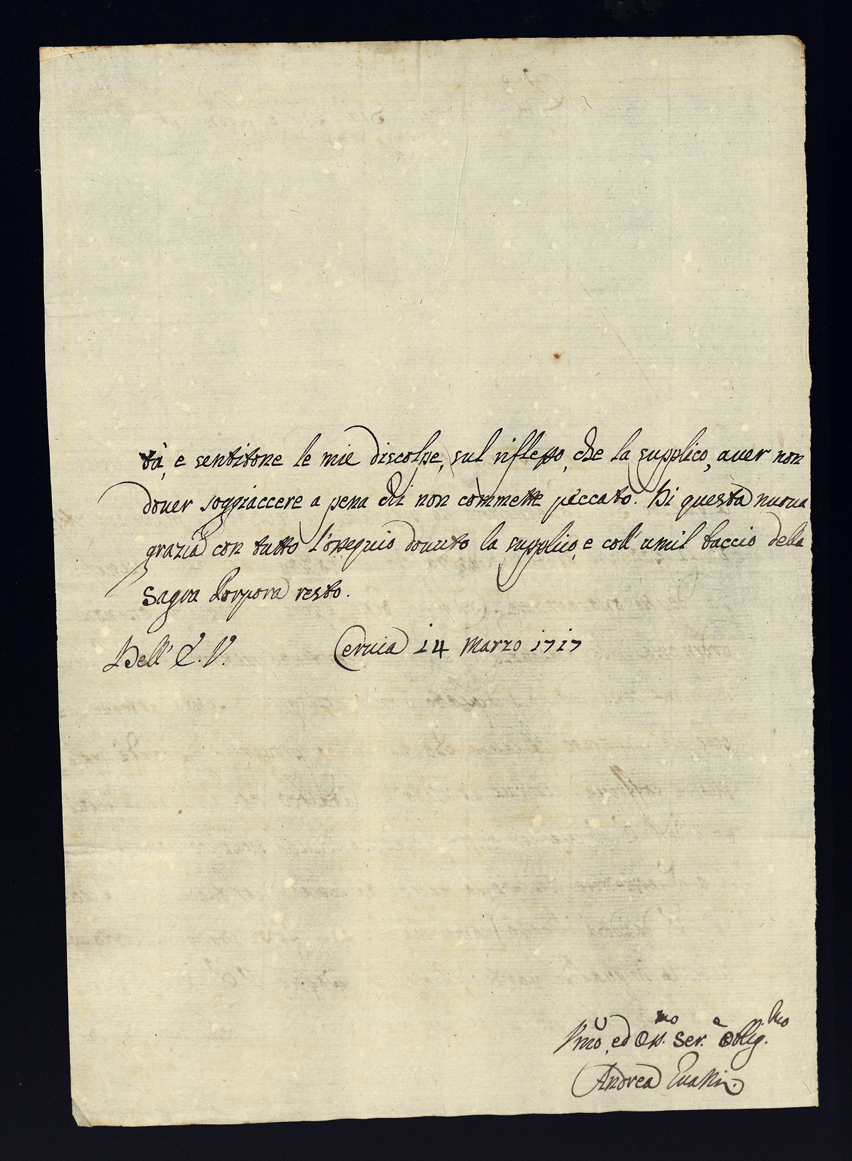 tà, e sentitone le mie discolpe, sul riflesso, che la supplico, auer non
douer soggiaccere a pena chi non commette peccato. Di questa nuoua
grazia con tutto l'ossequio douuto la supplico, e coll' umil baccio della
Sagra Porpora resto.
Dell' E. V. Ceruia 14 Marzo 1717
Vmo, ed Oss.mo Ser.e Oblig.mo
Andrea